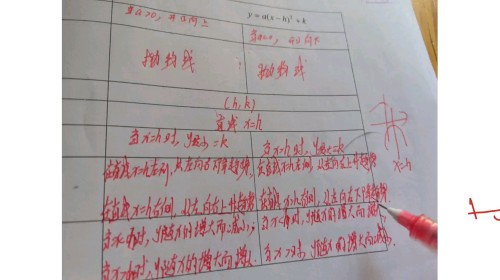 y=a(x-h)²+k
当a>0，开口向上
当a<0，开口向下
抛物线 抛物线
(h,k)
直线 x=h
当x=h时，y最小=k 当x=h时，y最大=k
在直线x=h左侧，从左向右下降趋势 在直线x=h左侧，从左向右上升趋势
在直线x=h右侧，从左向右上升趋势 在直线x=h右侧，从左向右下降趋势
当x<h时，y随x的增大而减小； 当x<h时，y随x的增大而增
当x>h时，y随x的增大而增 当x>h时，y随x的增大而减小.
x=h